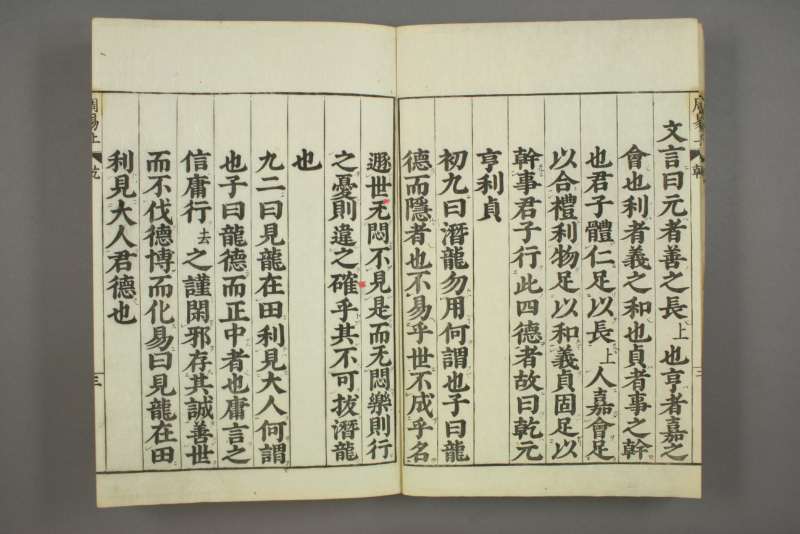 文言曰元者善之長上也亨者嘉之
會也利者義之和也貞者事之幹
也君子體仁足以長上人嘉會足
以合禮利物足以和義貞固足以
幹事君子行此四德者故曰乾元
亨利貞
初九曰潛龍勿用何謂也子曰龍
德而隱者也不易乎世不成乎名
遯世无悶不見是而无悶樂則行
之憂則違之確乎其不可拔潛龍
也
九二曰見龍在田利見大人何謂
也子曰龍德而正中者也庸言之
信庸行去之謹閑邪存其誠善世
而不伐德博而化易曰見龍在田
利見大人君德也
周易上
乾
三